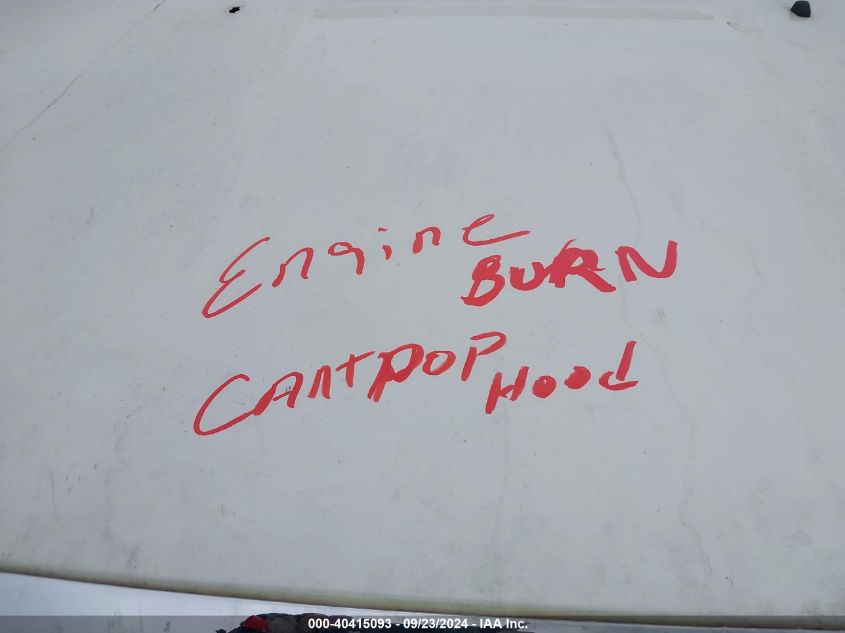 Engine
BURN
CAntpop
Hood
000-40415093 - 09/23/2024 - IAA Inc.